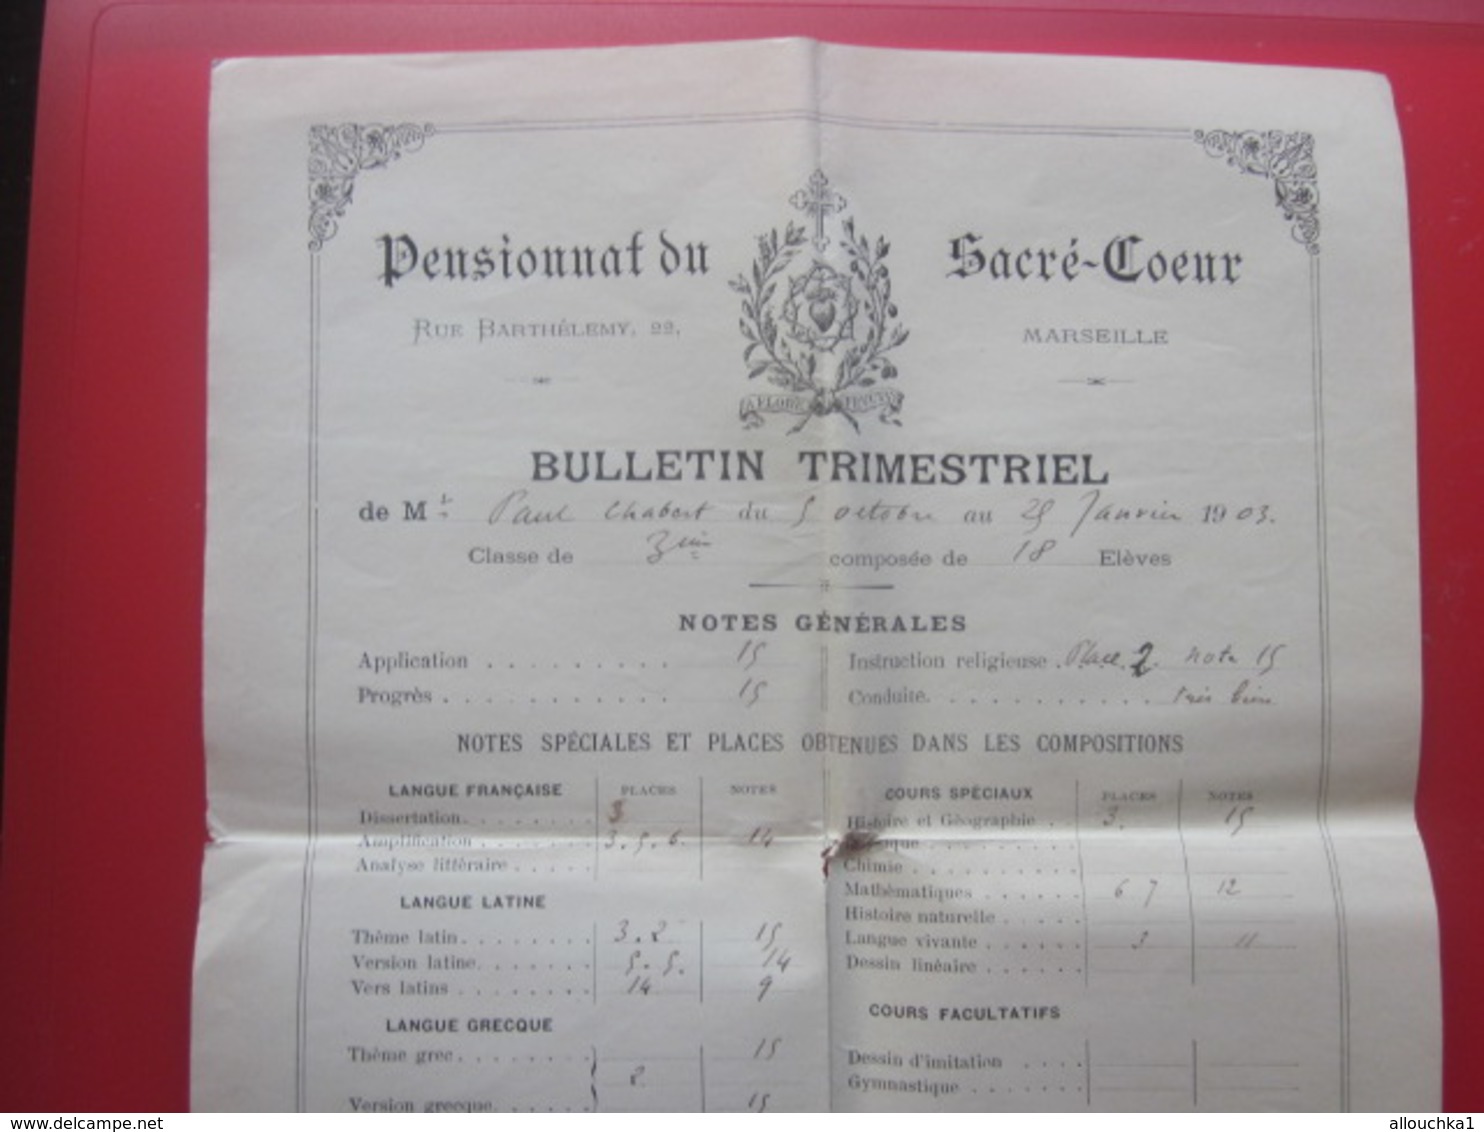 Pensionnat du Sacré-Coeur
RUE BARTHÉLEMY, 22, MARSEILLE
BULLETIN TRIMESTRIEL
de M r Paul Chabert du 5 octobre au 25 Janvier 1903.
Classe de 3ème composée de 18 Elèves
NOTES GÉNÉRALES
Application . . . . . . . . . 15
Progrès . . . . . . . . . . . 15
Instruction religieuse . Place 2. note 15
Conduite. . . . . . . . . . très bien
NOTES SPÉCIALES ET PLACES OBTENUES DANS LES COMPOSITIONS
LANGUE FRANÇAISE PLACES NOTES
Dissertation. . . . . . . . 3
Amplification . . . . . . . 3. 5. 6. 14
Analyse littéraire . . . . .
LANGUE LATINE
Thème latin. . . . . . . . 3. 2 15
Version latine. . . . . . . 5. 5. 14
Vers latins . . . . . . . . 14 9
LANGUE GRECQUE
Thème grec. . . . . . . . 15
2
Version grecque. . . . . . 15
COURS SPÉCIAUX PLACES NOTES
Histoire et Géographie . . 3. 15
Chimie . . . . . . . . . .
Mathématiques . . . . . . 6 7 12
Histoire naturelle . . . . .
Langue vivante . . . . . . 3 11
Dessin linéaire . . . . . .
COURS FACULTATIFS
Dessin d'imitation . . . .
Gymnastique . . . . . . .
delcampe.net
allouchka1